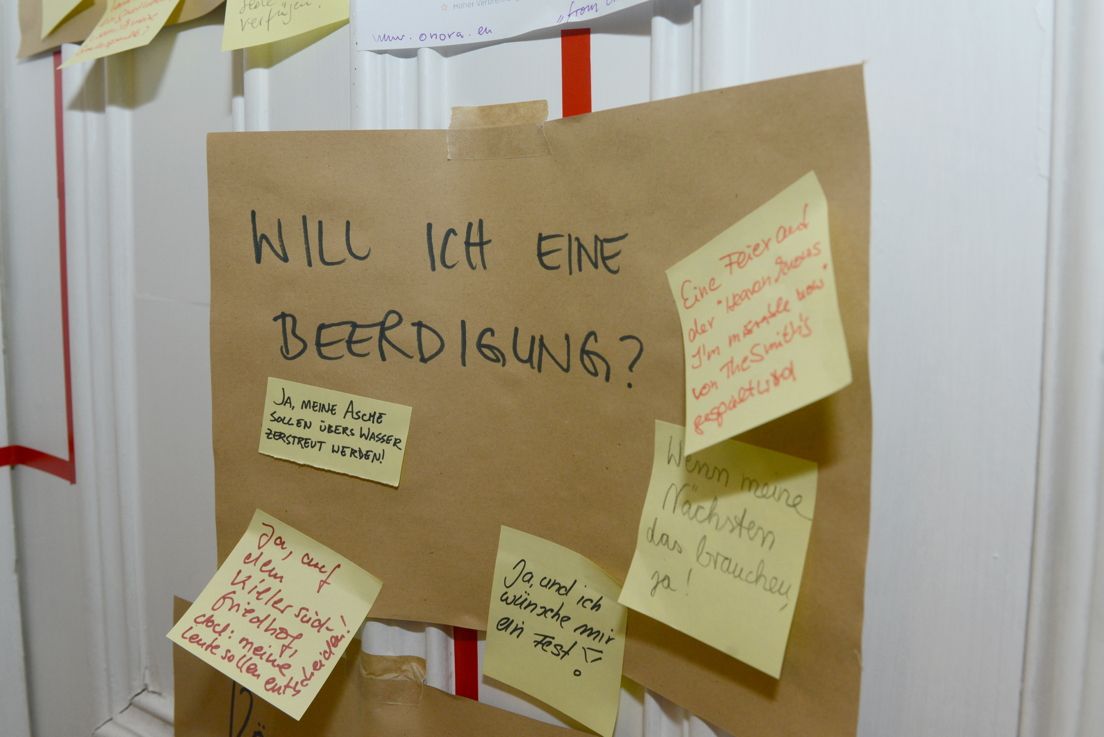 verfügen!
www.onora.eu
"from
WILL ICH EINE
BEERDIGUNG?
Eine Feier auf
der "Heaven knows
I'm miserable now"
von The Smith's
gespielt wird
JA, MEINE ASCHE
SOLLEN ÜBERS WASSER
ZERSTREUT WERDEN!
Wenn meine
Nächsten
das brauchen,
ja!
Ja, auf
dem
Kieler Süd-
friedhof,
doch: meine
Leute sollen entscheiden!
Ja, und ich
wünsche mir
ein Fest!